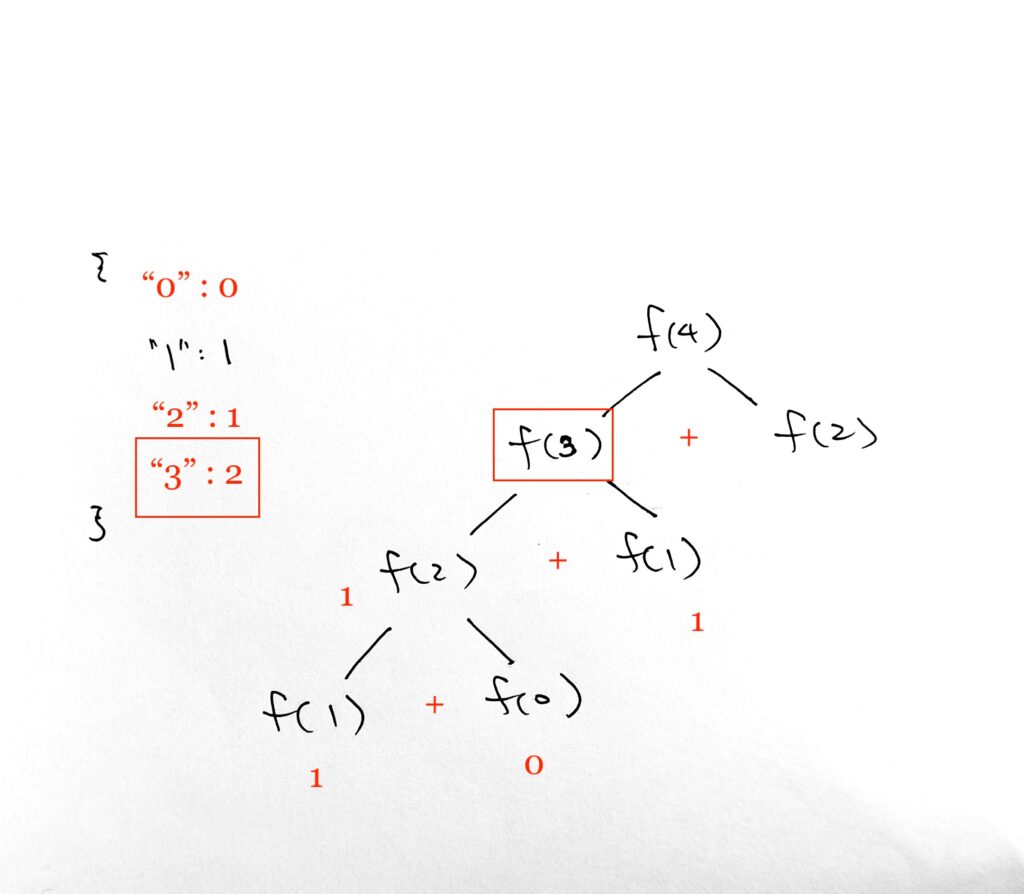 {
“0” : 0
"1" : 1
“2” : 1
“3” : 2
}
f(4)
f(3) + f(2)
f(2) + f(1)
1
1
f(1) + f(0)
1 0